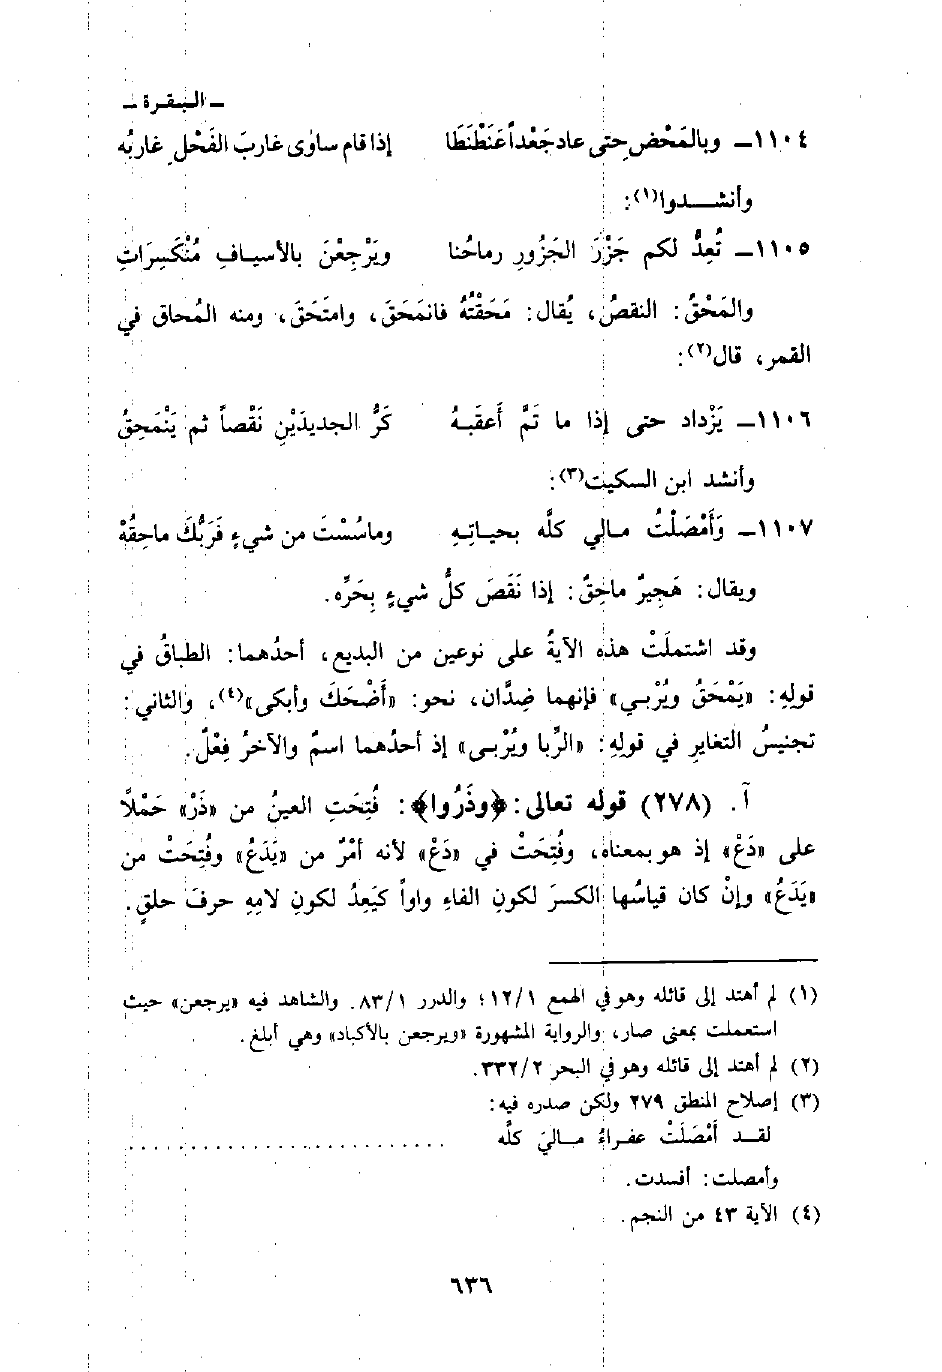 ـ البقرة ـ
١١٠٤ـ وبالمَحْضِ حتى عاد جَعْداً عَنَطْنَطَا إذا قام ساوٰى غاربَ الفَحْلِ غاربُه
وأنشدوا(١):
١١٠٥ـ تُعِدُّ لكم جَزْرَ الجَزُورِ رماحُنا ويَرْجِعْنَ بالأسيافِ مُنْكَسِرَاتِ
والمَحْقُ: النقصُ، يُقال: مَحَقْتُهُ فانمَحَقَ، وامتَحَقَ، ومنه المُحاق في
القمر، قال(٢):
١١٠٦ـ يَزْداد حتى إذا ما تَمَّ أَعقَبهُ كَرُّ الجديدَيْنِ نَقْصاً ثم يَنْمَحِقُ
وأنشد ابن السكيت(٣):
١١٠٧ـ وَأَمْصَلْتُ مالي كلَّه بحياتِهِ وماسُسْتَ من شيءٍ فَرَبُّكَ ماحِقُهْ
ويقال: هَجِيرٌ ماحِقٌ: إذا نَقَصَ كلُّ شيءٍ بِحَرِّه.
وقد اشتملَتْ هذه الآيةُ على نوعين من البديع، أحدُهما: الطباقُ في
قوله: «يَمْحَقُ ويُرْبي» فإنهما ضِدَّان، نحو: «أَضْحَكَ وأبكى»(٤)، والثاني:
تجنيسُ التغايرِ في قولِهِ: «الرِّبا ويُرْبي» إذ أحدُهما اسمٌ والآخرُ فِعْلٌ.
آ. (٢٧٨) قوله تعالى: ﴿وذَرُوا﴾: فُتِحَتِ العينُ من «ذَرْ» حَمْلاً
على «دَعْ» إذ هو بمعناه، وفُتِحَتْ في «دَعْ» لأنه أمْرٌ من «يَدَعُ» وفُتِحَتْ من
«يَدَعُ» وإنْ كان قياسُها الكسرَ لكونِ الفاءِ واواً كيَعِدُ لكونِ لامِهِ حرفَ حلقٍ.
(١) لم أهتد إلى قائله وهو في الهمع ١٢/١؛ والدرر ٨٣/١. والشاهد فيه «يرجعن» حيث
استعملت بمعنى صار، والرواية المشهورة «ويرجعن بالأكباد» وهي أبلغ.
(٢) لم أهتد إلى قائله وهو في البحر ٣٣٢/٢.
(٣) إصلاح المنطق ٢٧٩ ولكن صدره فيه:
لقد أَمْصَلَتْ عفراءُ ماليَ كلَّه ..........................
وأمصلت: أفسدت.
(٤) الآية ٤٣ من النجم.
٦٣٦